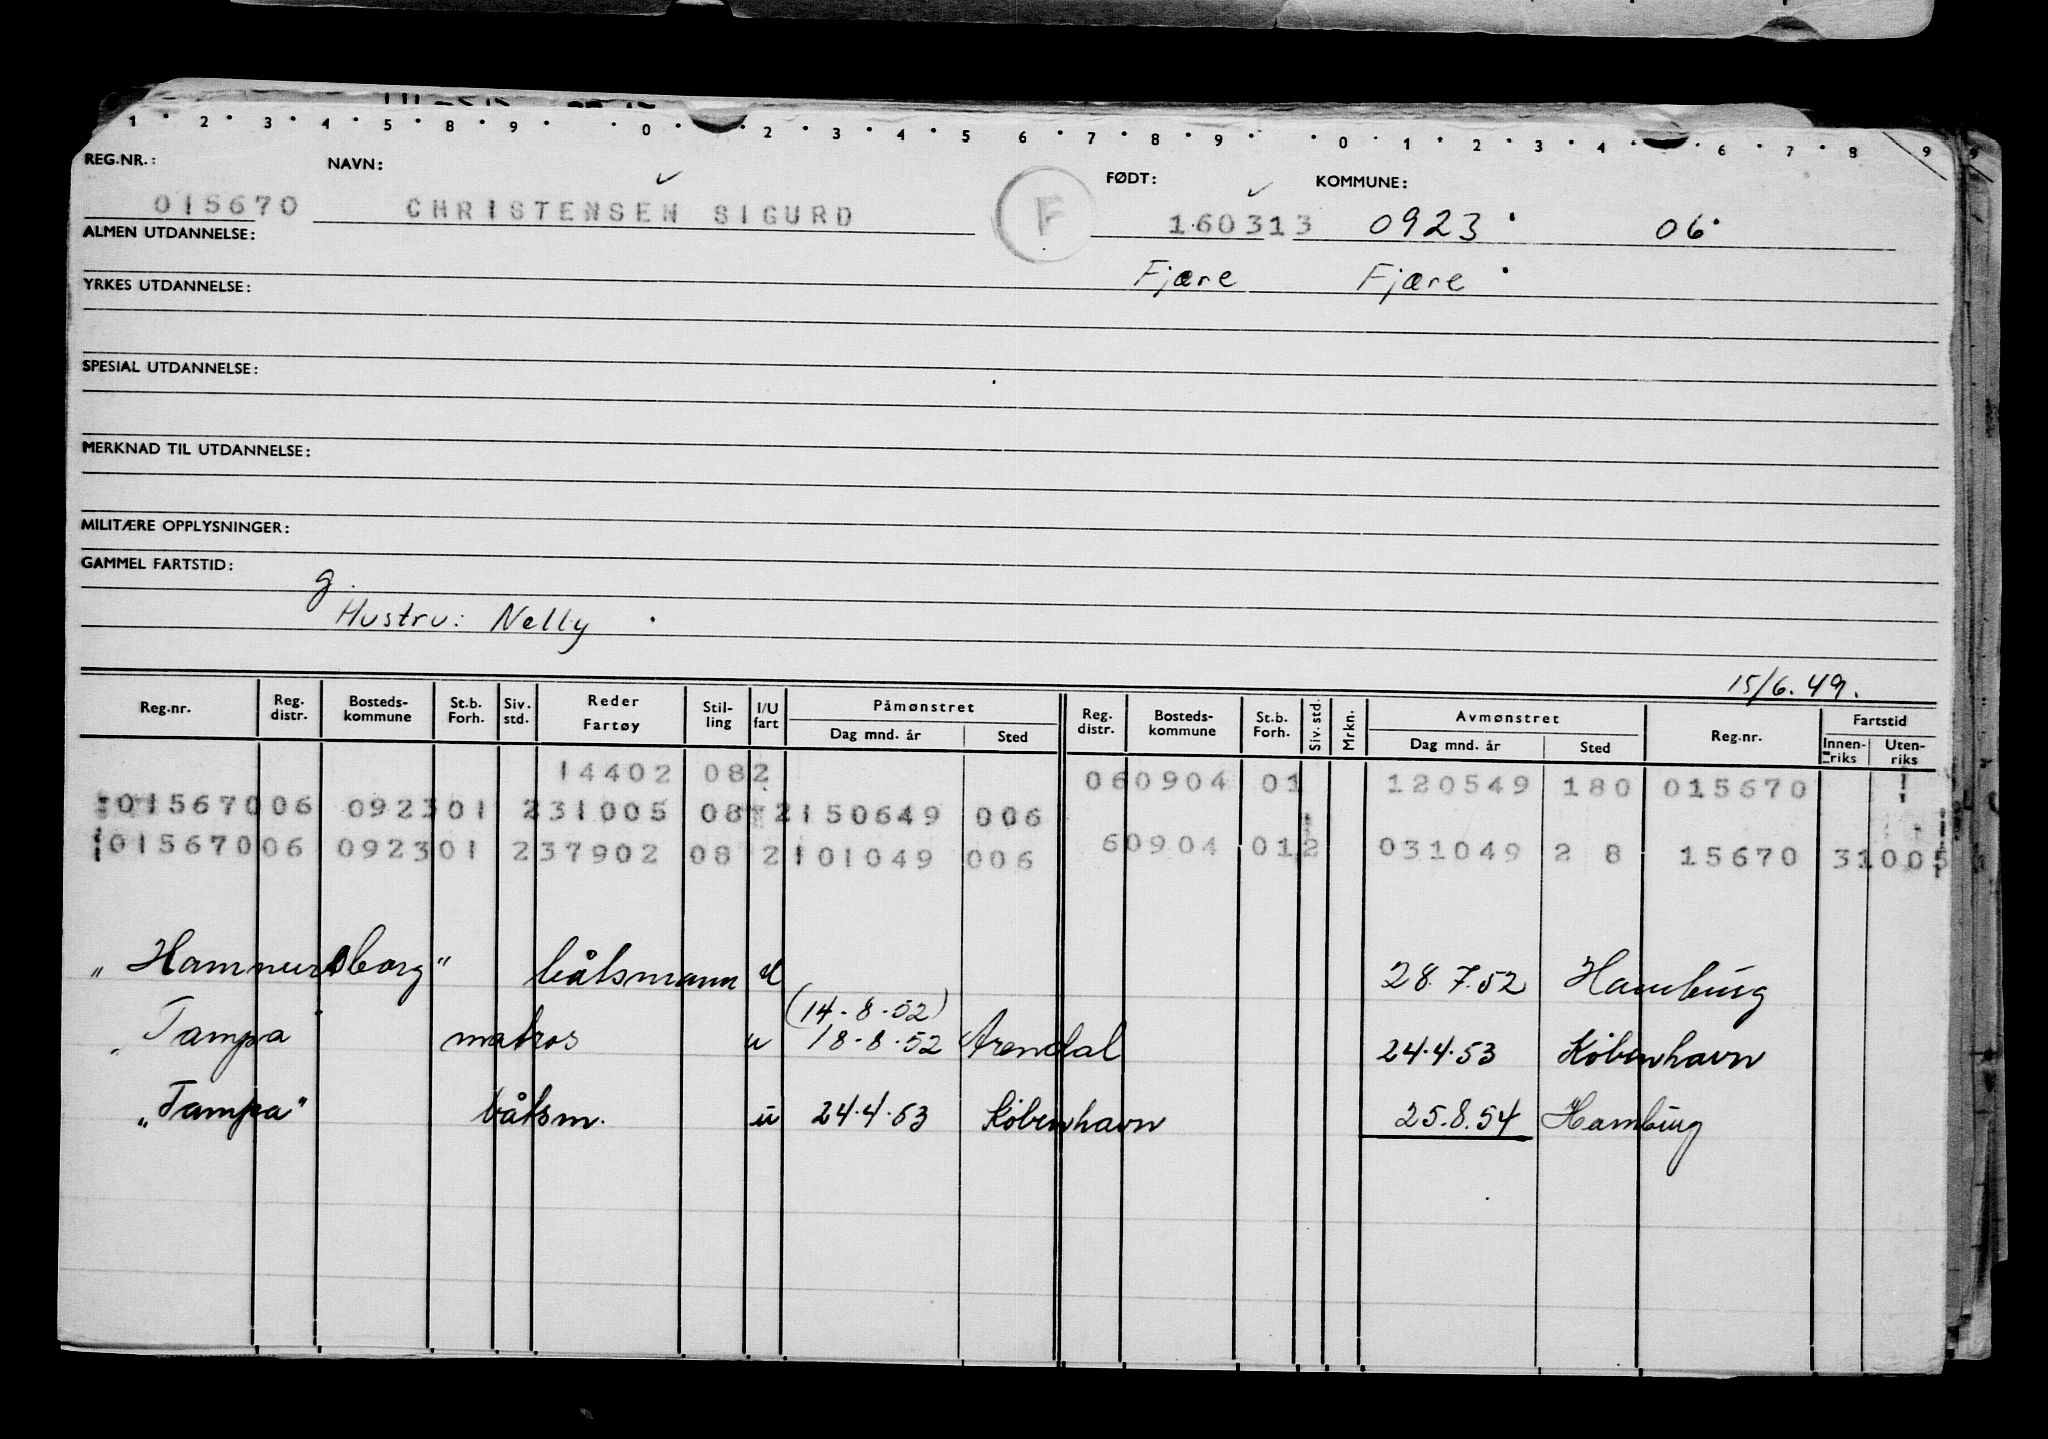 1 · 2 · 3 · 4 · 5 · 8 · 9 · · 0 · 2 · 3 · 4 · 5 6 · 7 · 8 · 9 · · 0 · 1 · 2 · 3 · 4 · 6 · 7 · 8 9 9
REG.NR.: NAVN: FØDT: KOMMUNE:
015670 CHRISTENSEN SIGURD F 160313 0923 06
ALMEN UTDANNELSE:
Fjære Fjære
YRKES UTDANNELSE:
SPESIAL UTDANNELSE:
MERKNAD TIL UTDANNELSE:
MILITÆRE OPPLYSNINGER:
GAMMEL FARTSTID:
g.
Hustru: Nelly
15/6.49.
Reg.nr. Reg. distr. Bosteds-kommune St.b. Forh. Siv. std. Reder Fartøy Stil-ling I/U fart Påmønstret Dag mnd. år Sted Reg. distr. Bosteds-kommune St.b. Forh. Siv. std. Mrkn. Avmønstret Dag mnd. år Sted Reg.nr. Fartstid Innen-riks Uten-riks
14402 082 060904 01 120549 180 015670
01567006 092301 231005 08 2150649 006
01567006 092301 237902 08 2101049 006 60904 012 031049 2 8 15670 31005
båtsmann u 28.7.52 Hamburg
(14-8-52)
„Tampa" matros u 18-8-52 Arendal 24.4.53 København
„Tampa" båtsm. u 24.4.53 København 25.8.54 Hamburg